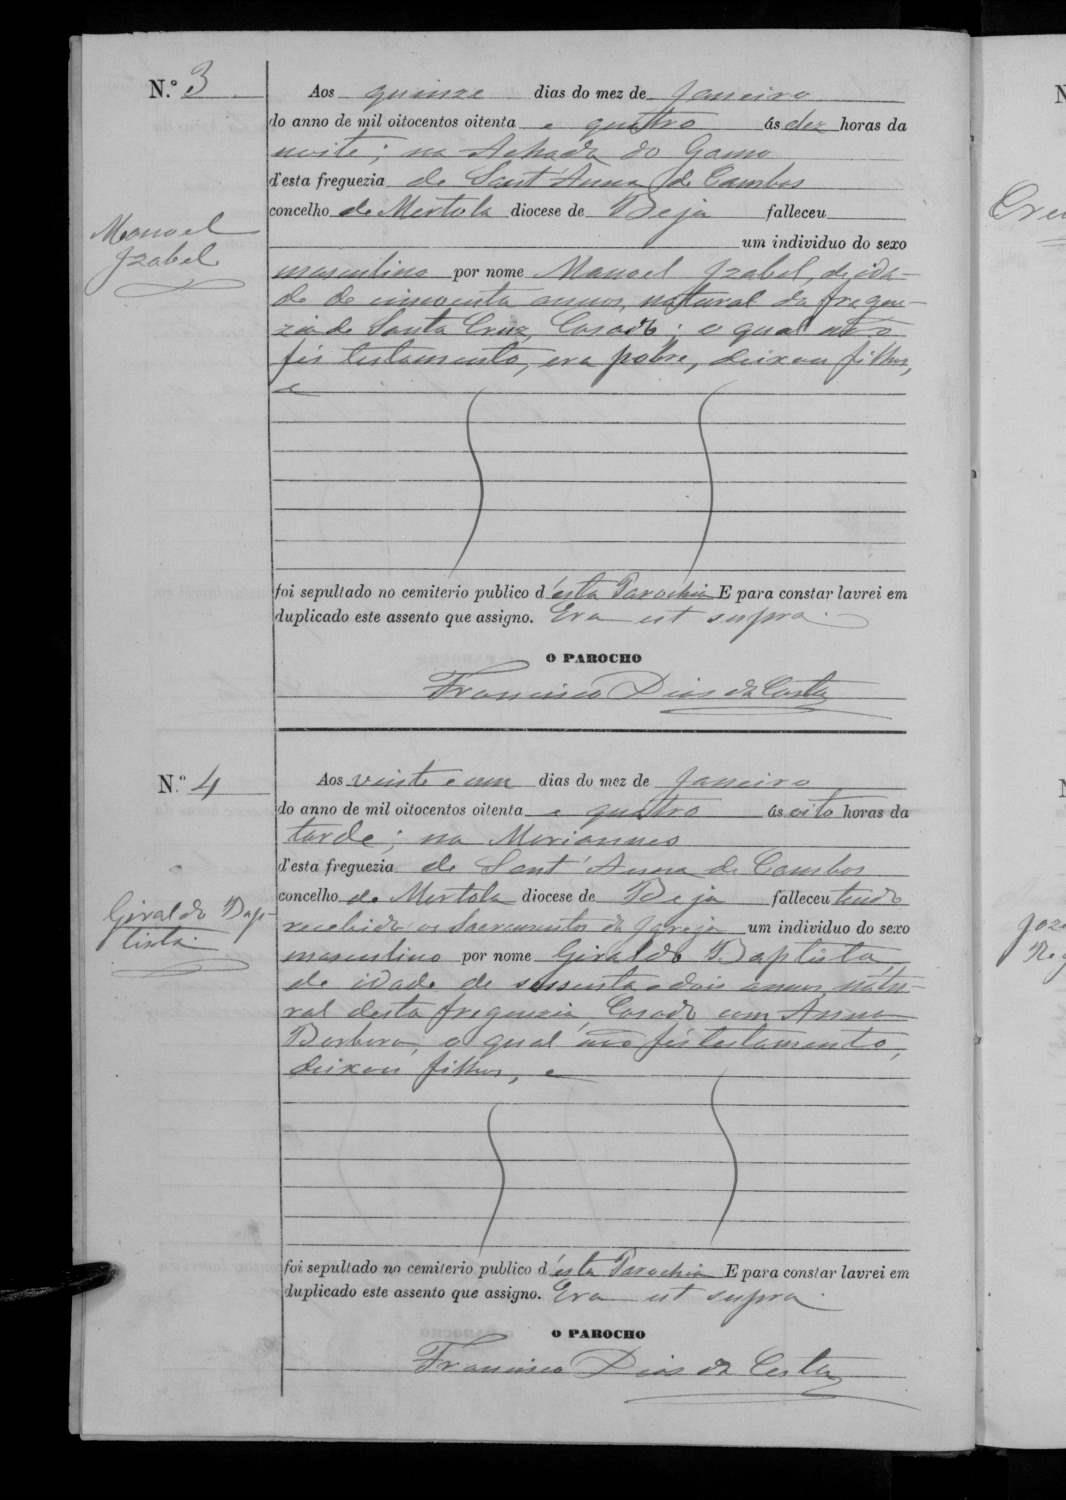 N.º 3
Aos quinze dias do mez de Janeiro
do anno de mil oitocentos oitenta e quatro ás dez horas da
noite; na Achada do Gamo
d'esta freguezia de Sant'Anna de Cambas
concelho de Mertola diocese de Beja falleceu
um individuo do sexo
Manoel
Izabel
masculino por nome Manoel Izabel, de ida-
de de cincoenta annos, natural da fregue-
zia de Santa Cruz, Casado; o qual não
fes testamento, era pobre, deixou filhos,
e
foi sepultado no cemiterio publico d'esta Parochia E para constar lavrei em
duplicado este assento que assigno. Era ut supra.
O PAROCHO
Francisco Dias da Costa
N.º 4
Aos vinte e um dias do mez de Janeiro
do anno de mil oitocentos oitenta e quatro ás oito horas da
tarde; na Mariannes
d'esta freguezia de Sant'Anna de Cambas
concelho de Mertola diocese de Beja falleceu tendo
Giraldo Bap-
tista.
recebido os Sacramentos da Igreja um individuo do sexo
masculino por nome Giraldo Baptista,
de idade de sessenta e dois annos, natu-
ral desta freguezia, Casado com Anna
Barbara, o qual não fes testamento,
deixou filhos, e
foi sepultado no cemiterio publico d'esta Parochia E para constar lavrei em
duplicado este assento que assigno. Era ut supra.
O PAROCHO
Francisco Dias da Costa